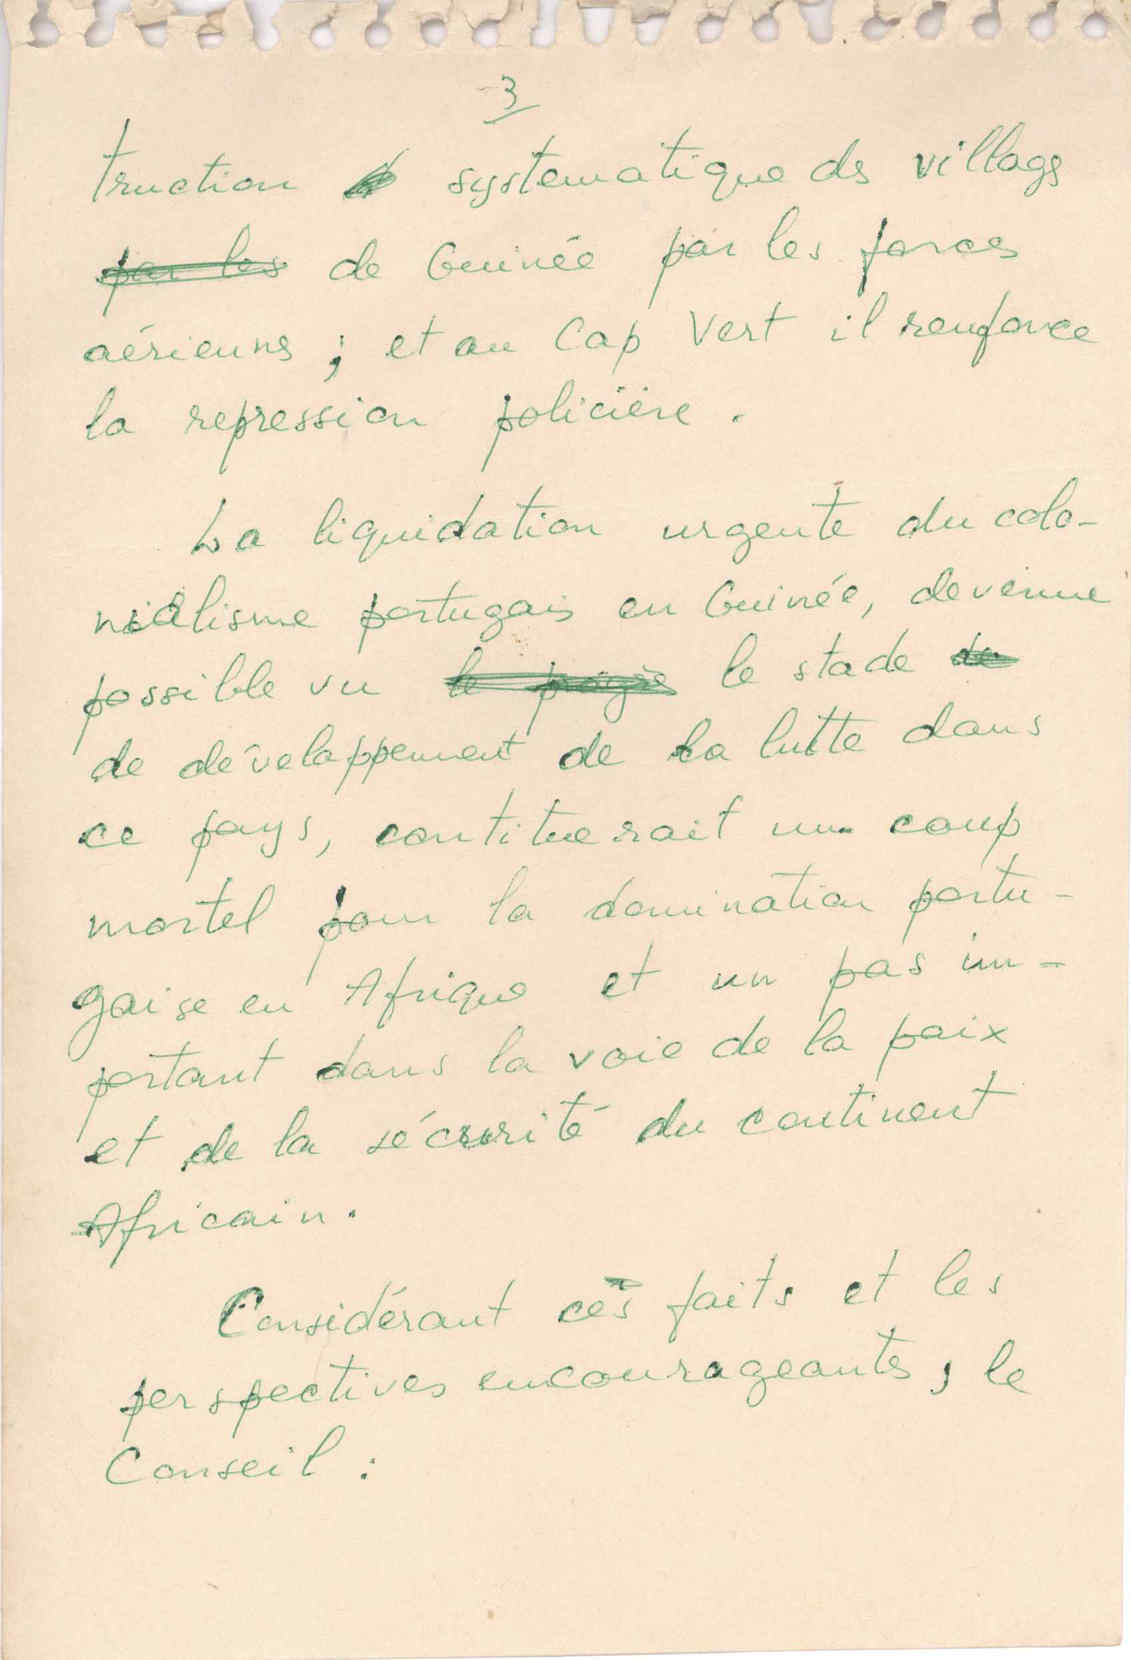 3
truction systematique des villages
par les de Guinée par les forces
aériennes ; et au Cap Vert il renforce
la repression policière .
La liquidation urgente du colo-
nialisme portugais en Guinée, devenue
possible vu le progrès le stade de
de développement de la lutte dans
ce pays, contituerait un coup
mortel pour la domination portu-
gaise en Afrique et un pas im-
portant dans la voie de la paix
et de la sécurité du continent
Africain.
Considérant ces faits et les
perspectives encourageantes, le
Conseil :